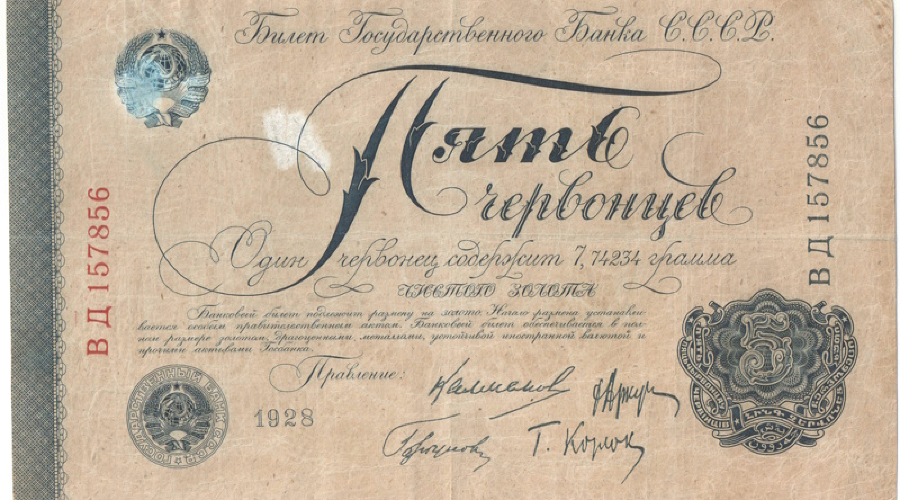 Билет Государственного Банка С.С.С.Р.
Пять
червонцев
Один червонец содержит 7,74234 грамма
ЧИСТОГО ЗОЛОТА
Банковый билет подлежит размену на золото. Начало размена устанавли-
вается особым правительственным актом. Банковый билет обеспечивается в пол-
ном размере золотом, драгоценными металлами, устойчивой иностранной валютой и
прочими активами Госбанка.
Правление:
1928
Т. Козлов
5
ВД 157856
ВД 157856